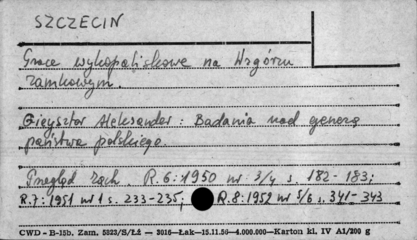 SZCZECIN
Prace wykopaliskowe na Wzgórzu
zamkowym.
Gieysztor Aleksander: Badania nad genezą
państwa polskiego.
Przegląd Zach. R.6:1950 nr 3/4 s. 182-183;
R.7:1951 nr 1 s. 233-235, R.8:1952 nr 5/6 s. 341-343
CWD - B-15b, Zam. 5323/S/Łź — 3016—Łak—15.11.50—4.000.000—Karton kl. IV A1/200 g